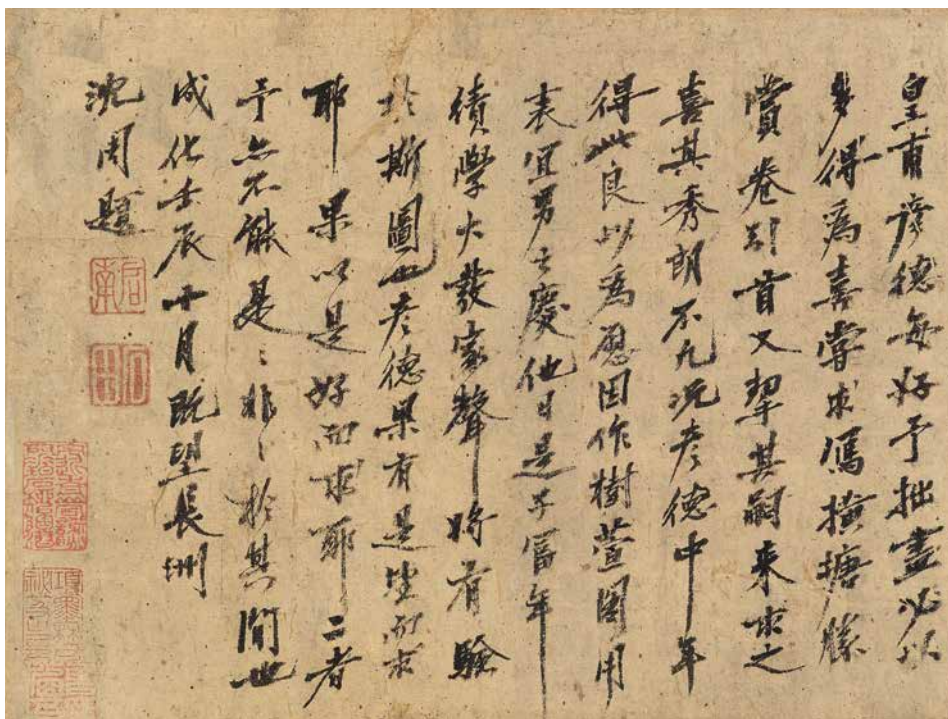 皇甫彦德每好予拙畫必以
多得為喜嘗求寫橫塘勝
賞卷引首又挈其嗣來求之
喜其秀朗不凡況彦德中年
得此良以為慰因作樹萱圖用
表宜男之慶他日是子富年
績學大發家聲將有驗
於斯圖也彦德果有是望而求
耶果以是好而求耶二者
予亦不能是是非非於其間也
成化壬辰十月既望長洲
沈周題
啟南